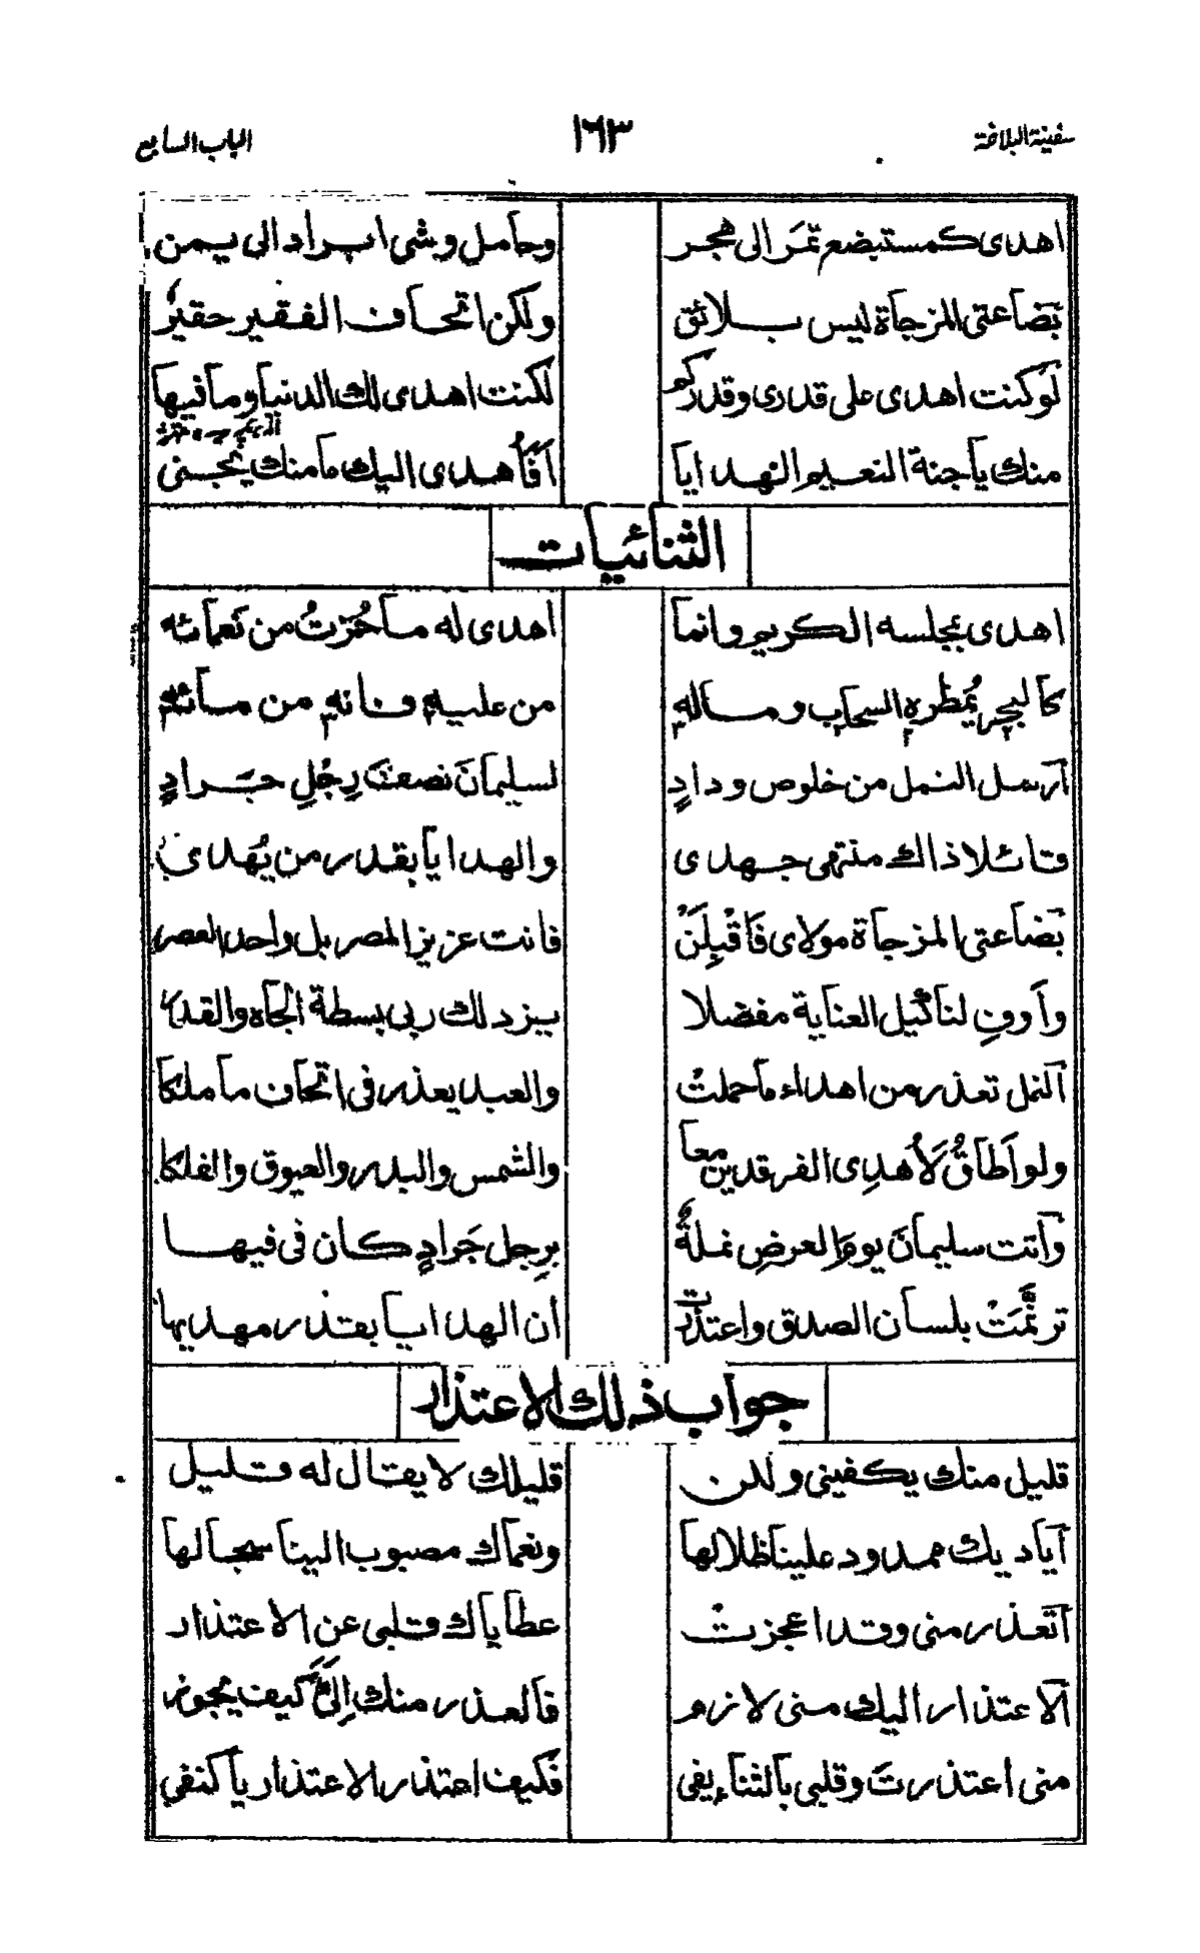 سفينة البلاغة ١٦٣ الباب السابع
اهدى كمستبضع تمر الى هجر وحامل وشى ابراد الى يمن
بضاعتى المزجاة ليس بلائق ولكن اتحاف الفقير حقير
لو كنت اهدى على قدرى وقدركم لكنت اهدى لك الدنيا وما فيها
منك يا جنة النعيم الهدايا أفأهدى اليك ما منك يجنى
الثنائيات
اهدى لمجلسه الكريم وانما اهدى له ما حُزتُ من نعمائه
كالبحر يُمطره السحاب وماله من عليه فانه من مائه
ارسل النمل من خلوص ودادٍ لسليمانَ نصفَ رِجُلِ جَرادٍ
قائلا ذاك منتهى جهدى والهدايا بقدر من يُهدى
بضاعتى المزجاة مولاى فَاقْبِلَنْ فانت عزيز المصر بل واحد العصر
وأوفِ لنا كيل العناية مفضلا يزد لك ربى بسطة الجاه والقدر
النمل تعذر من اهداء ما حملتْ والعبد يعذر فى اتحاف ما ملكا
ولو اَطاقُ لَأُهدِى الفرقدين معا والشمس والبدر والعيوق والفلكا
وأتت سليمانَ يومَ العرضِ نملةٌ بِرِجل جَرادٍ كان فى فيها
ترنَّمَتْ بلسان الصدق واعتذرت أن الهدايا بقدر مهديها
جواب ذلك الاعتذار
قليل منك يكفينى ولكن قليلك لا يقال له قليل
اياديك ممدود علينا ظلالها ونعماك مصبوب الينا سجالها
اتعذر منى وقد اعجزتْ عطاياك قلبى عن الاعتذار
الاعتذار اليك منى لازم فالعذر منك اِلىَّ كيف يجوز
منى اعتذرتَ وقلبى بالثناء يفى فكيف اعتذر الاعتذار يا كنفى